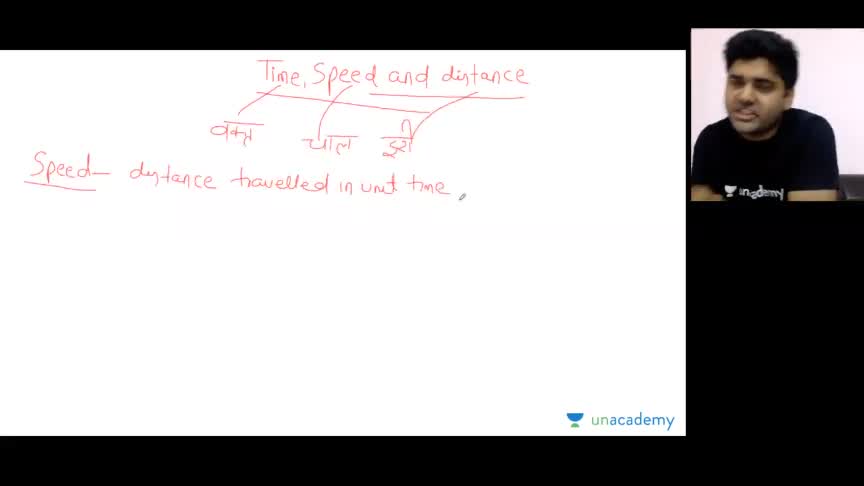 Time, Speed and distance
वक्त चाल दूरी
Speed - distance travelled in unit time
unacademy
unacademy